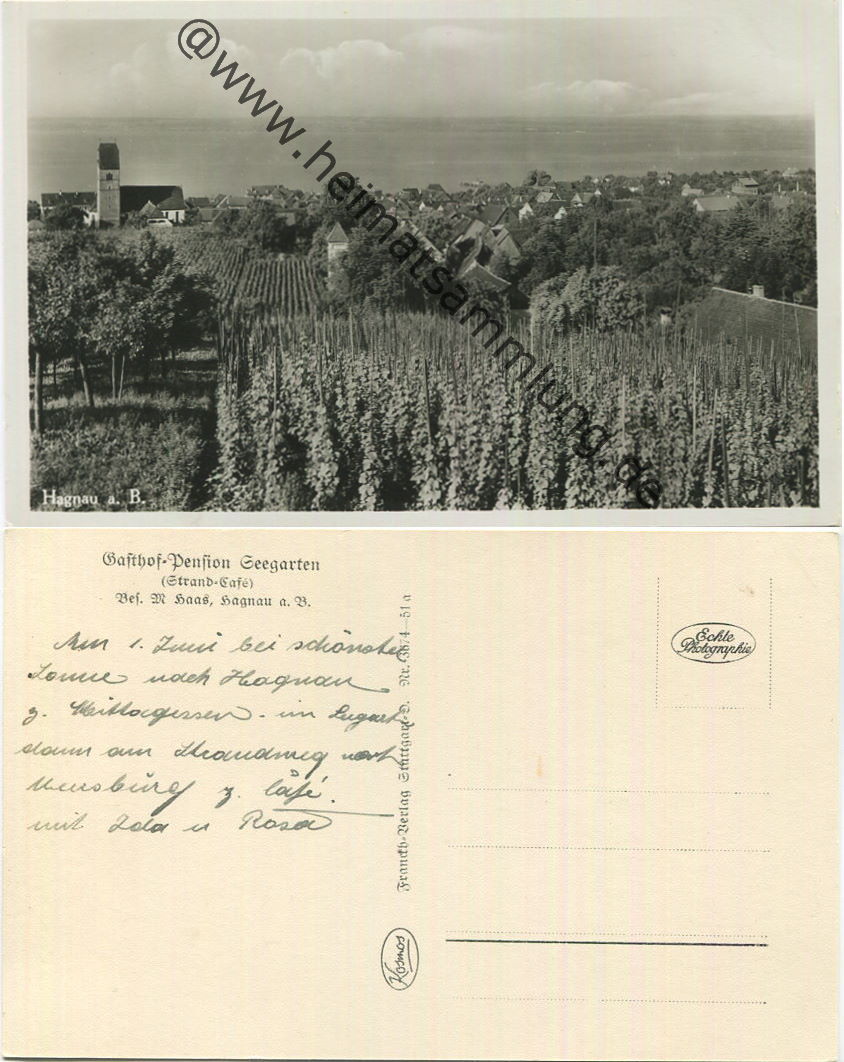 @www.heimatsammlung.de
Hagnau a. B.
Gasthof-Pension Seegarten
(Strand-Café)
Bes. M Haas, Hagnau a. B.
Am 1. Juni bei schönster
Sonne nach Hagnau
z. Mittagessen - im
dann am Strandweg nach
z. Café.
mit Ida u Rosa
Franckh-Verlag Stuttgart-O. Nr. 3674—51a
Kosmos
Echte
Photographie